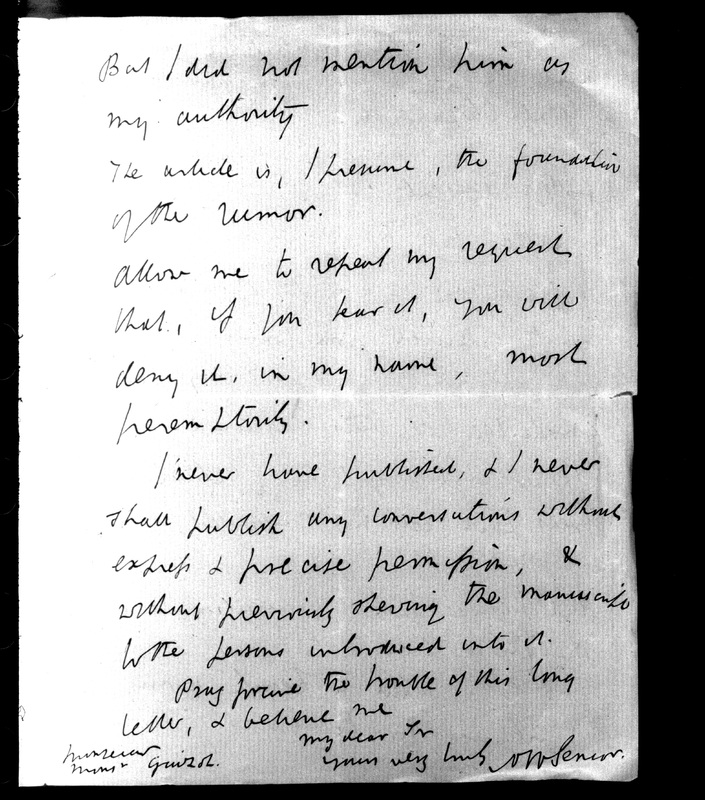 But I did not mention him as
my authority
The article is, I presume, the foundation
of the rumor.
Allow me to repeat my request
that, if you hear it, you will
deny it, in my name, most
peremptorily.
I never have published, & I never
shall publish any conversations without
express & precise permission, &
without previously shewing the manuscript
to the persons introduced into it.
Pray forgive the trouble of this long
letter, & believe me
my dear Sir
yours very truly NWSenior.
Monsieur
Monsr Guizot.